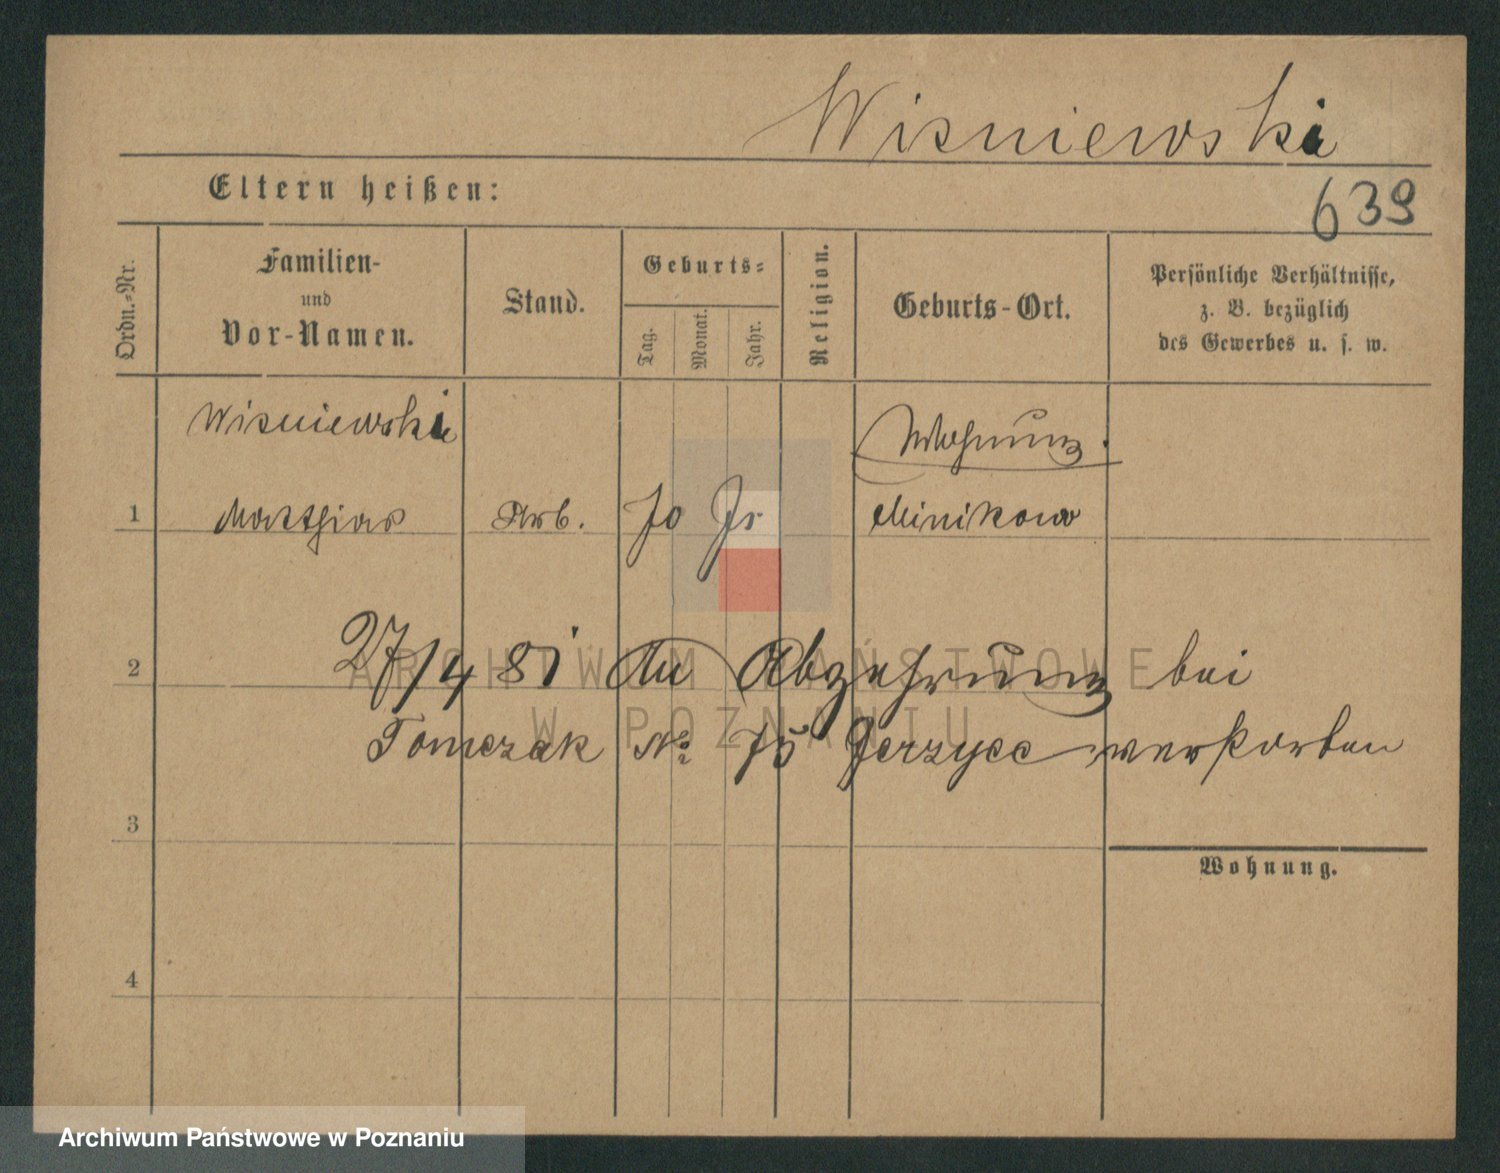 Wisniewski
Eltern heißen:
639
Ordn.-Nr.
Familien-
und
Vor-Namen.
Stand.
Geburts-
Tag.
Monat.
Jahr.
Religion.
Geburts-Ort.
Persönliche Verhältnisse,
z. B. bezüglich
des Gewerbes u. s. w.
Wisniewski
Wohnung.
1 Matthias Arb. 70 Jr Minikowo
2 27/4 81 An Abzehrung bei
Tomczak No 75 Jerzyce verstorben
3
Wohnung.
4
ARCHIWUM PAŃSTWOWE
W POZNANIU
Archiwum Państwowe w Poznaniu